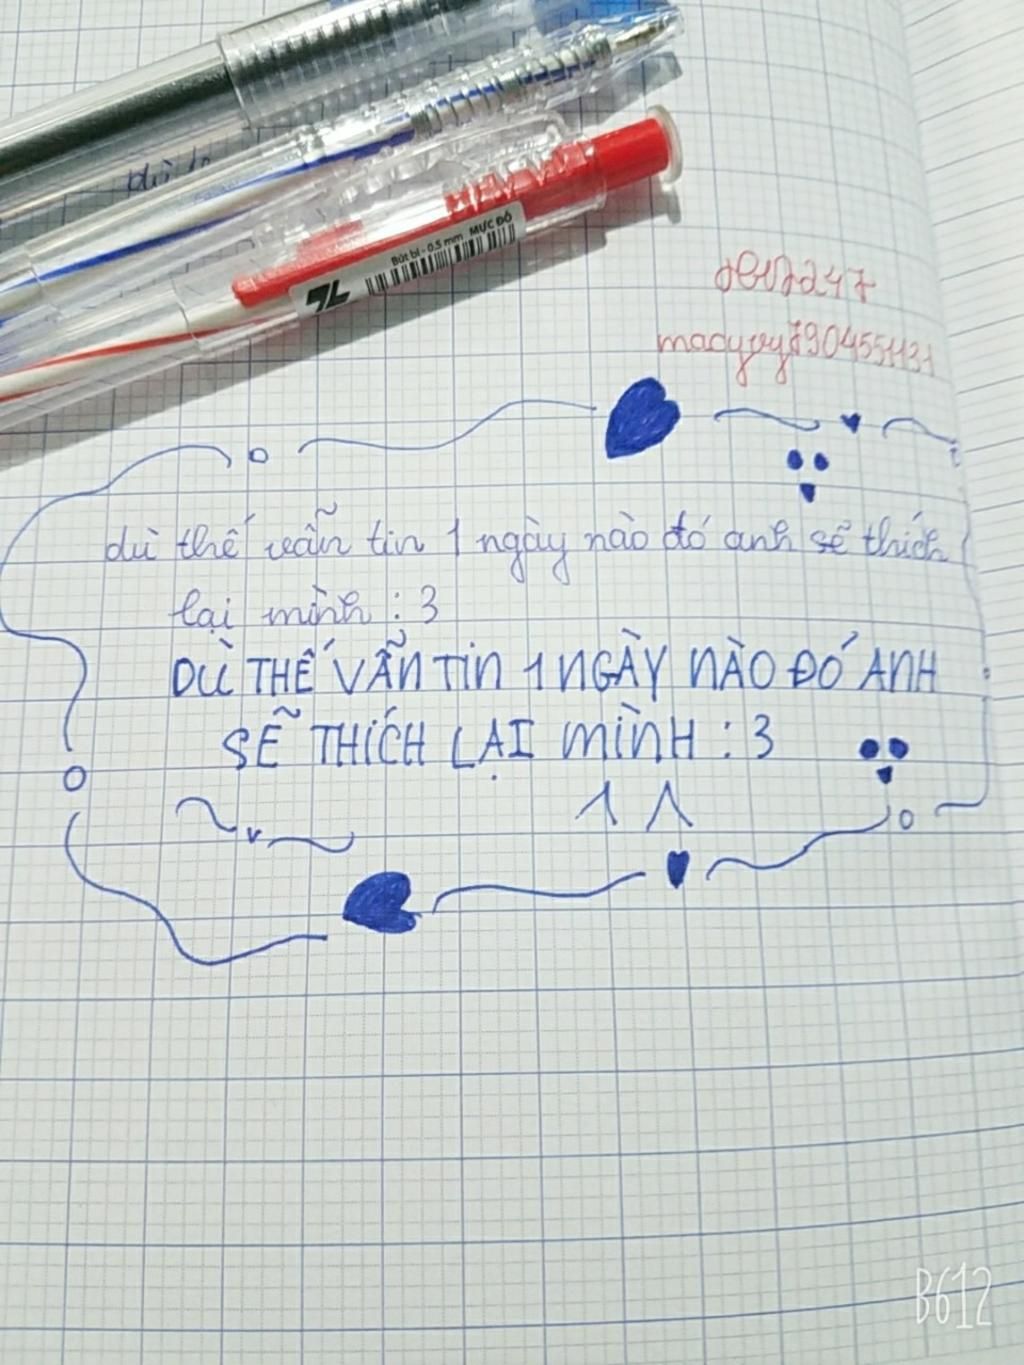 Bút bi - 0.5 mm MỰC ĐỎ
TL
dù thế vẫn tin 1 ngày nào đó anh sẽ thích
lại mình : 3
DÙ THẾ VẪN TIN 1 NGÀY NÀO ĐÓ ANH
SẼ THÍCH LẠI MÌNH : 3
B612